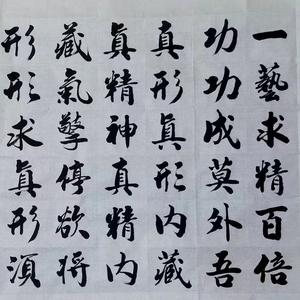 一藝求精百倍
功功成莫外吾
真形眞形内藏
眞精神真精内
藏氣擎停欲将
形形求眞形須